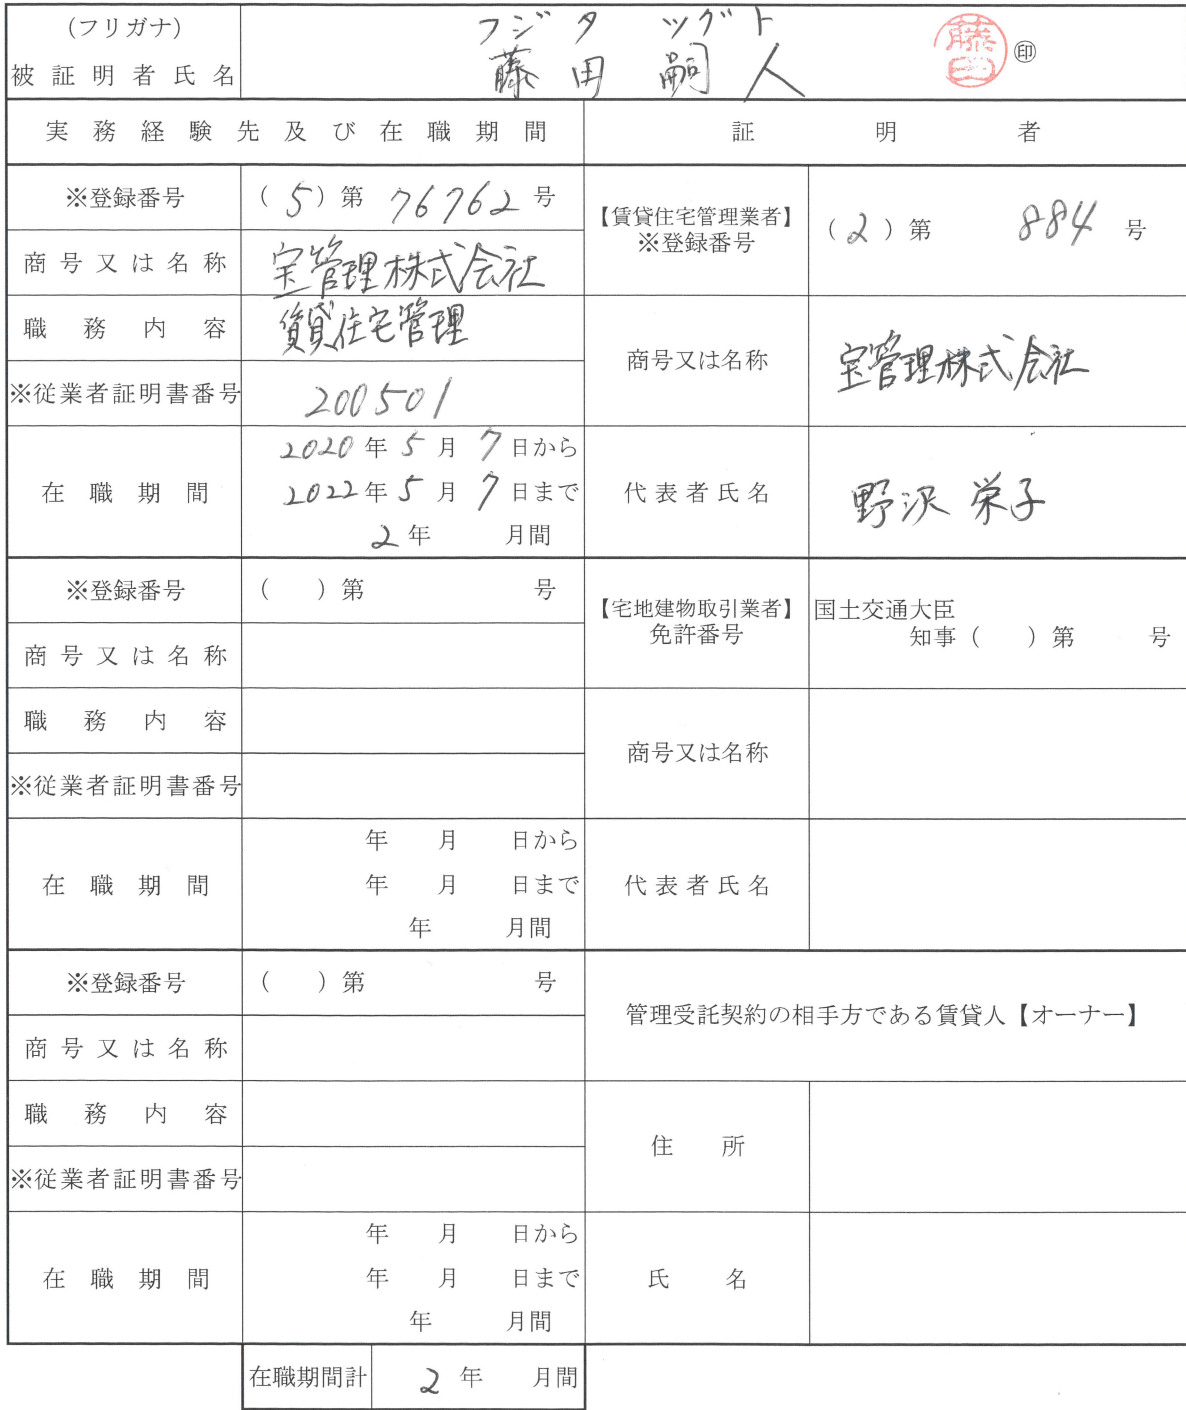 (フリガナ) フジタ ツグト
被証明者氏名 藤田 嗣人 藤田 ㊞
実務経験先及び在職期間 証明者
※登録番号 (5)第 76762 号
【賃貸住宅管理業者】
※登録番号 (2)第 884 号
商号又は名称 宝管理株式会社
職務内容 賃貸住宅管理
商号又は名称 宝管理株式会社
※従業者証明書番号 200501
在職期間 2020年5月7日から
2022年5月7日まで
2年 月間
代表者氏名 野沢 栄子
※登録番号 ( )第 号
【宅地建物取引業者】
免許番号
国土交通大臣
知事( )第 号
商号又は名称
職務内容
商号又は名称
※従業者証明書番号
在職期間 年 月 日から
年 月 日まで
年 月間
代表者氏名
※登録番号 ( )第 号
管理受託契約の相手方である賃貸人【オーナー】
商号又は名称
職務内容
住所
※従業者証明書番号
在職期間 年 月 日から
年 月 日まで
年 月間
氏名
在職期間計 2年 月間